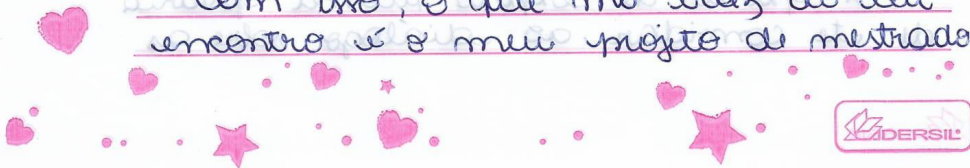 Com isso, o que me traz ao seu
encontro é o meu projeto de mestrado
DERSIL